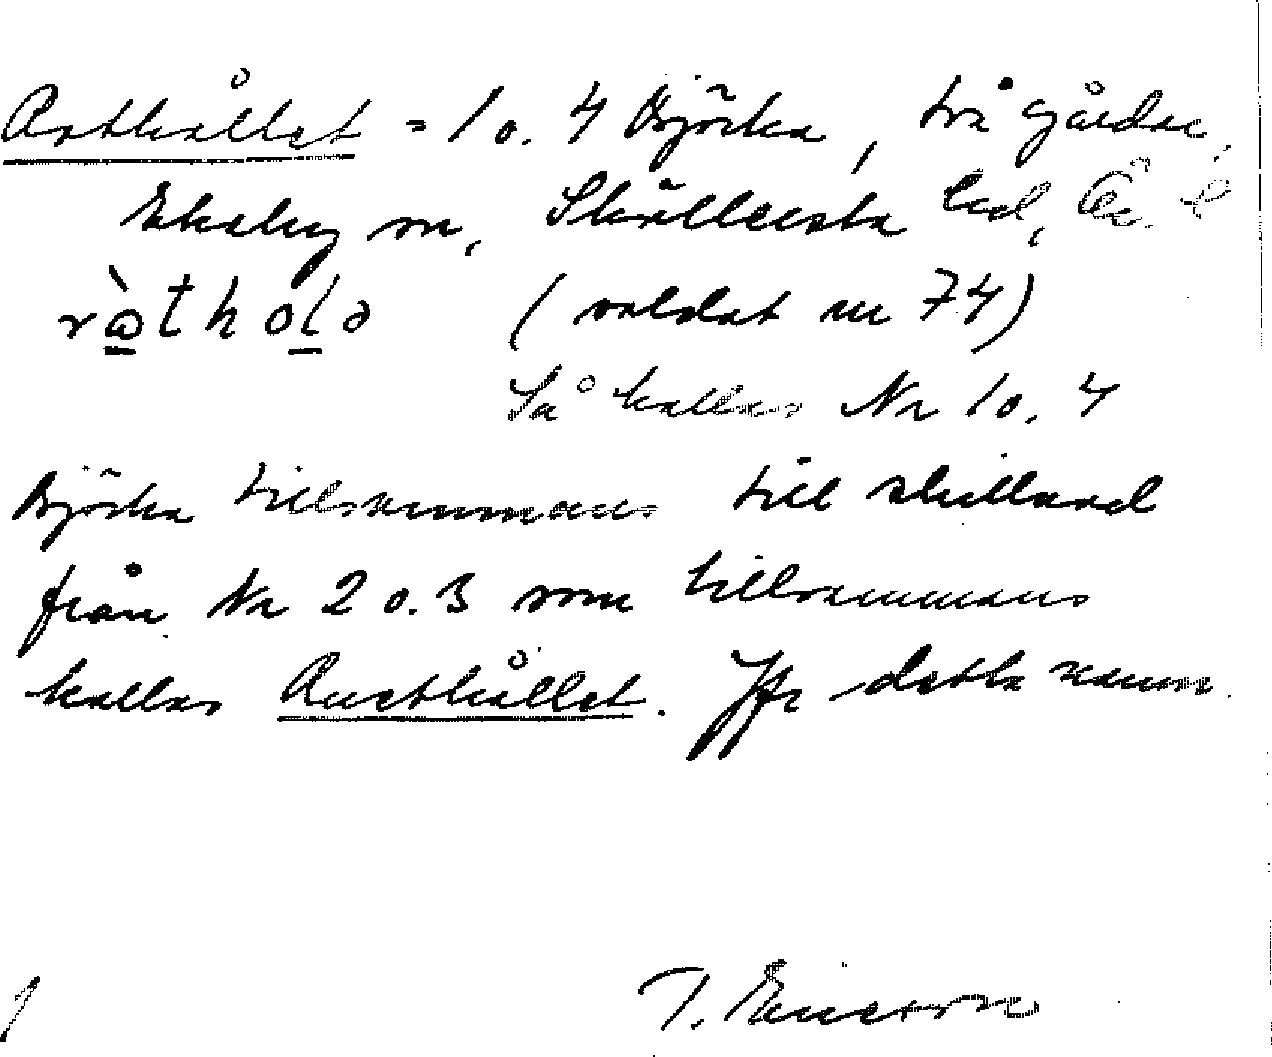 Rothållet = 1 o. 4 Björka, två gårdar,
Ekeby sn, Skyllersta hd, Ör. l
ròtholə (soldat nr 74)
Så kallas Nr 1 o. 4
Björka tillsammans till skillnad
från Nr 2 o. 3 som tillsammans
kallas Rusthållet. Jfr detta namn.
T. Ericsson